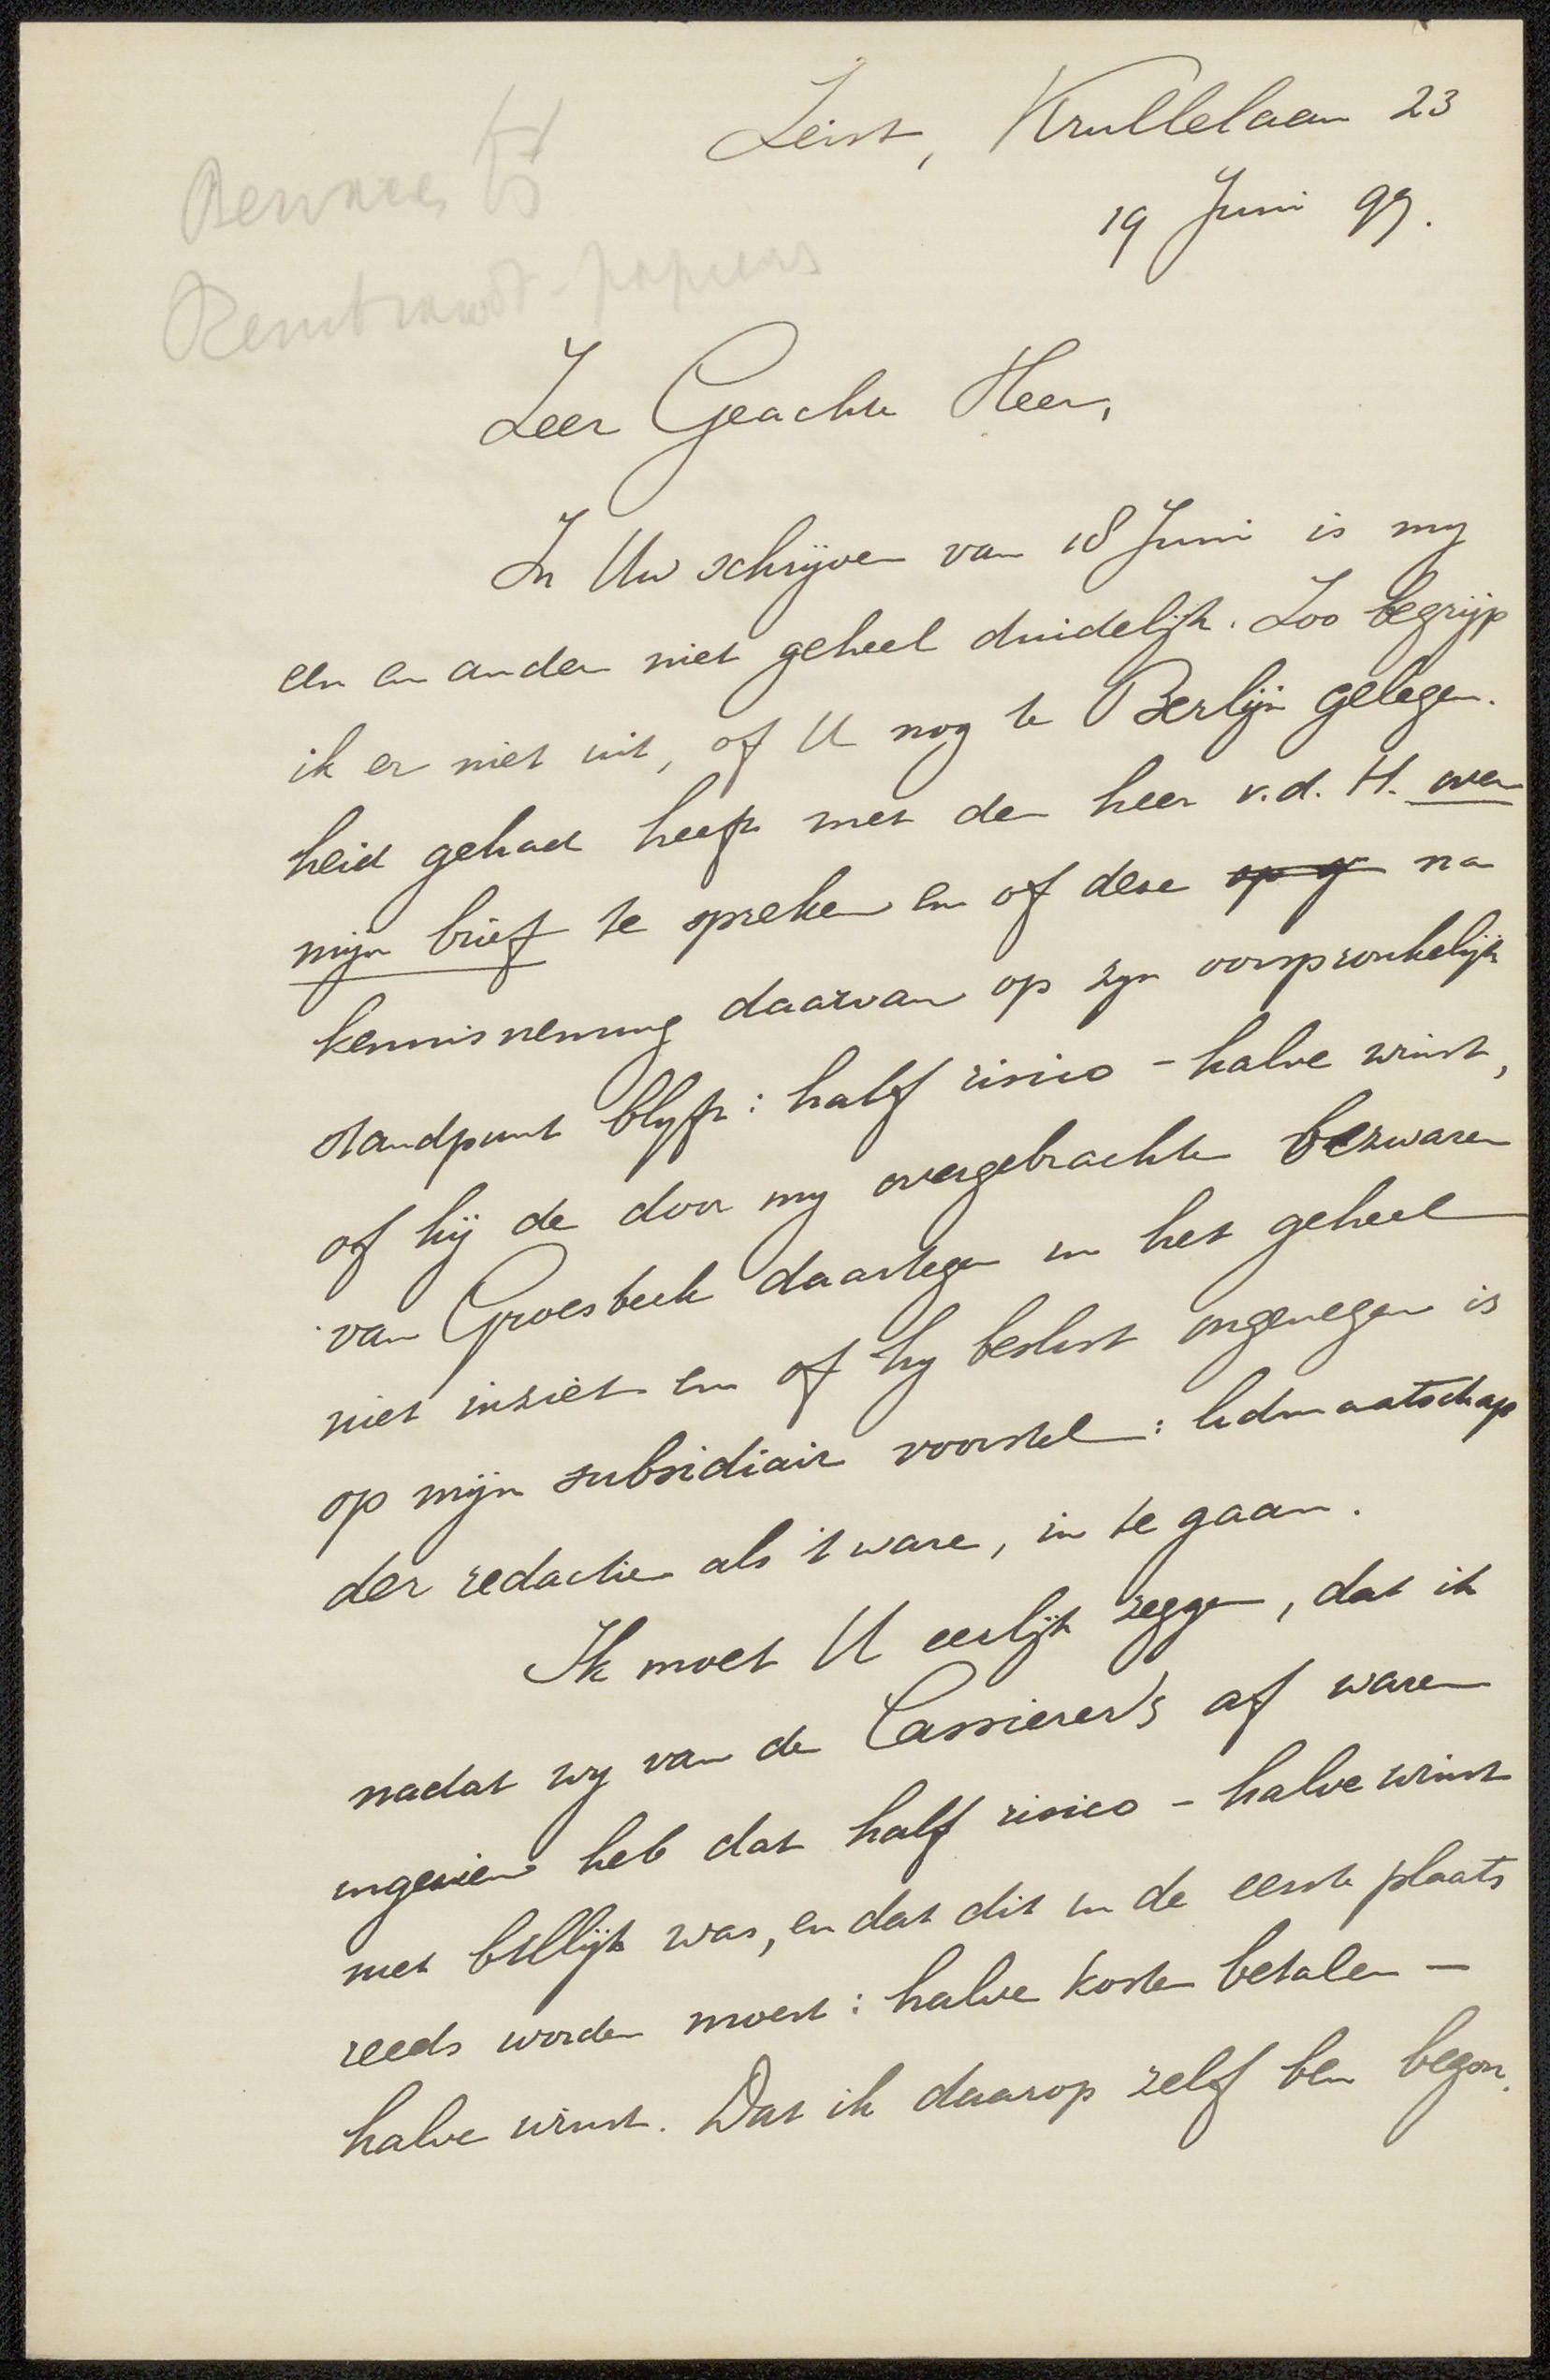 Zeist, Krullelaan 23
19 Juni 99.
Rembrandt-papieren
Zeer Geachte Heer,
In Uw schrijven van 18 Juni is my
een en ander niet geheel duidelijk. Zoo begrijp
ik er niet uit, of U nog te Berlijn gelegen.
heid gehad heeft met den heer v.d. H. over
mijn brief te spreken en of deze op g na
kennisneming daarvan op zyn oorspronkelijk
standpunt blyft: half risico - halve winst,
of hij de door my overgebrachte bezwaren
van Groesbeek daartegen in het geheel
niet inziet en of hy beslist ongenegen is
op mijn subsidiair voorstel: lidmaatschap
der redactie als 't ware, in te gaan.
Ik moet U eerlijk zeggen, dat ik
nadat wy van de Cassierer's af waren
ingezien heb dat half risico - halve winst
niet billijk was, en dat dit in de eerste plaats
reeds worden moest: halve kosten betalen —
halve winst. Dat ik daarop zelf ben begon.